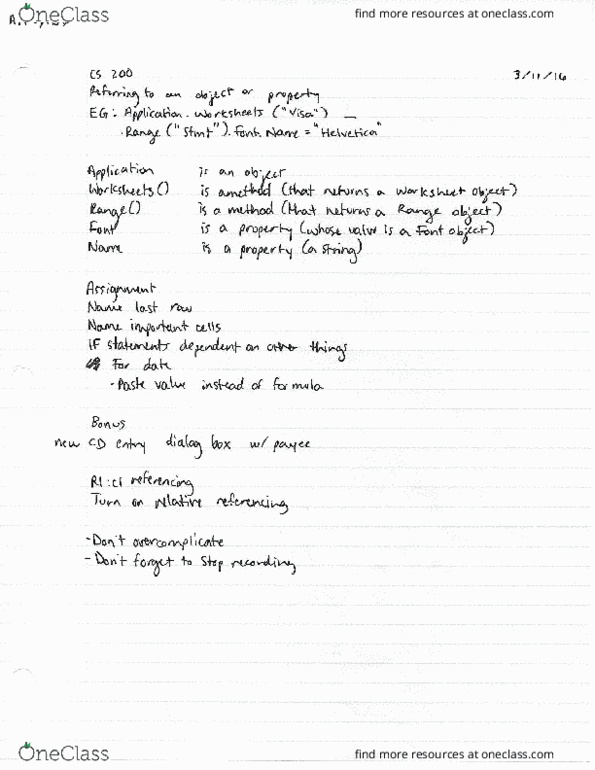 OneClass
find more resources at oneclass.com
CS 200
3/11/16
Referring to an object or property
EG: Application.Worksheets ("Visa") _
.Range ("Stmt").Font.Name = "Helvetica"
Application is an object
Worksheets() is a method (that returns a Worksheet object)
Range() is a method (that returns a Range object)
Font is a property (whose value is a Font object)
Name is a property (a string)
Assignment
Name last row
Name important cells
IF statements dependent on other things
For date
- Paste value instead of formula
Bonus
new CD entry dialog box w/ payee
R1:C1 referencing
Turn on relative referencing
- Don't overcomplicate
- Don't forget to stop recording
OneClass
find more resources at oneclass.com